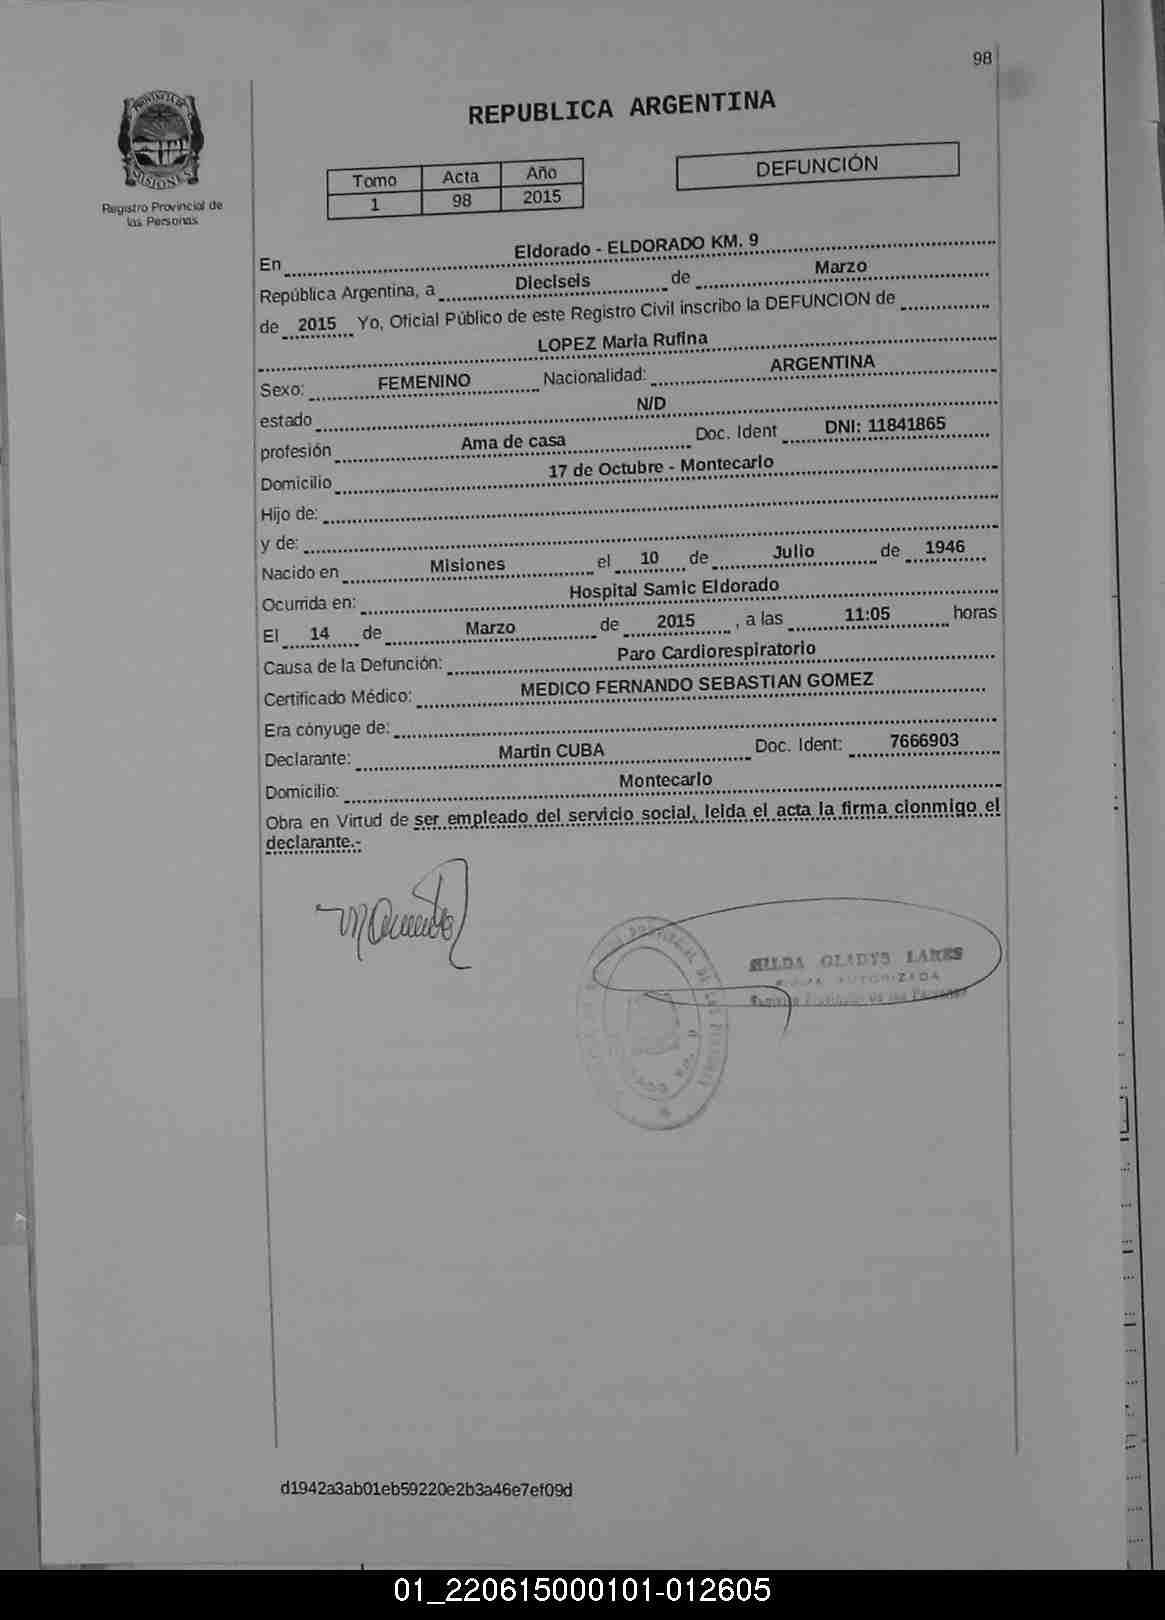 98
PROVINCIA DE
MISIONES
Registro Provincial de
las Personas
REPUBLICA ARGENTINA
Tomo Acta Año
1 98 2015
DEFUNCIÓN
En Eldorado - ELDORADO KM. 9
República Argentina, a Dieciseis de Marzo
de 2015 Yo, Oficial Público de este Registro Civil inscribo la DEFUNCION de
LOPEZ Maria Rufina
Sexo: FEMENINO Nacionalidad: ARGENTINA
estado N/D
profesión Ama de casa Doc. Ident DNI: 11841865
Domicilio 17 de Octubre - Montecarlo
Hijo de:
y de:
Nacido en Misiones el 10 de Julio de 1946
Ocurrida en: Hospital Samic Eldorado
El 14 de Marzo de 2015 , a las 11:05 horas
Causa de la Defunción: Paro Cardiorespiratorio
Certificado Médico: MEDICO FERNANDO SEBASTIAN GOMEZ
Era cónyuge de:
Declarante: Martin CUBA Doc. Ident: 7666903
Domicilio: Montecarlo
Obra en Virtud de ser empleado del servicio social, leida el acta la firma cionmigo el
declarante.-
GLADYS LARES
AUTORIZADA
Registro Provincial de las Personas
d1942a3ab01eb59220e2b3a46e7ef09d
01_220615000101-012605